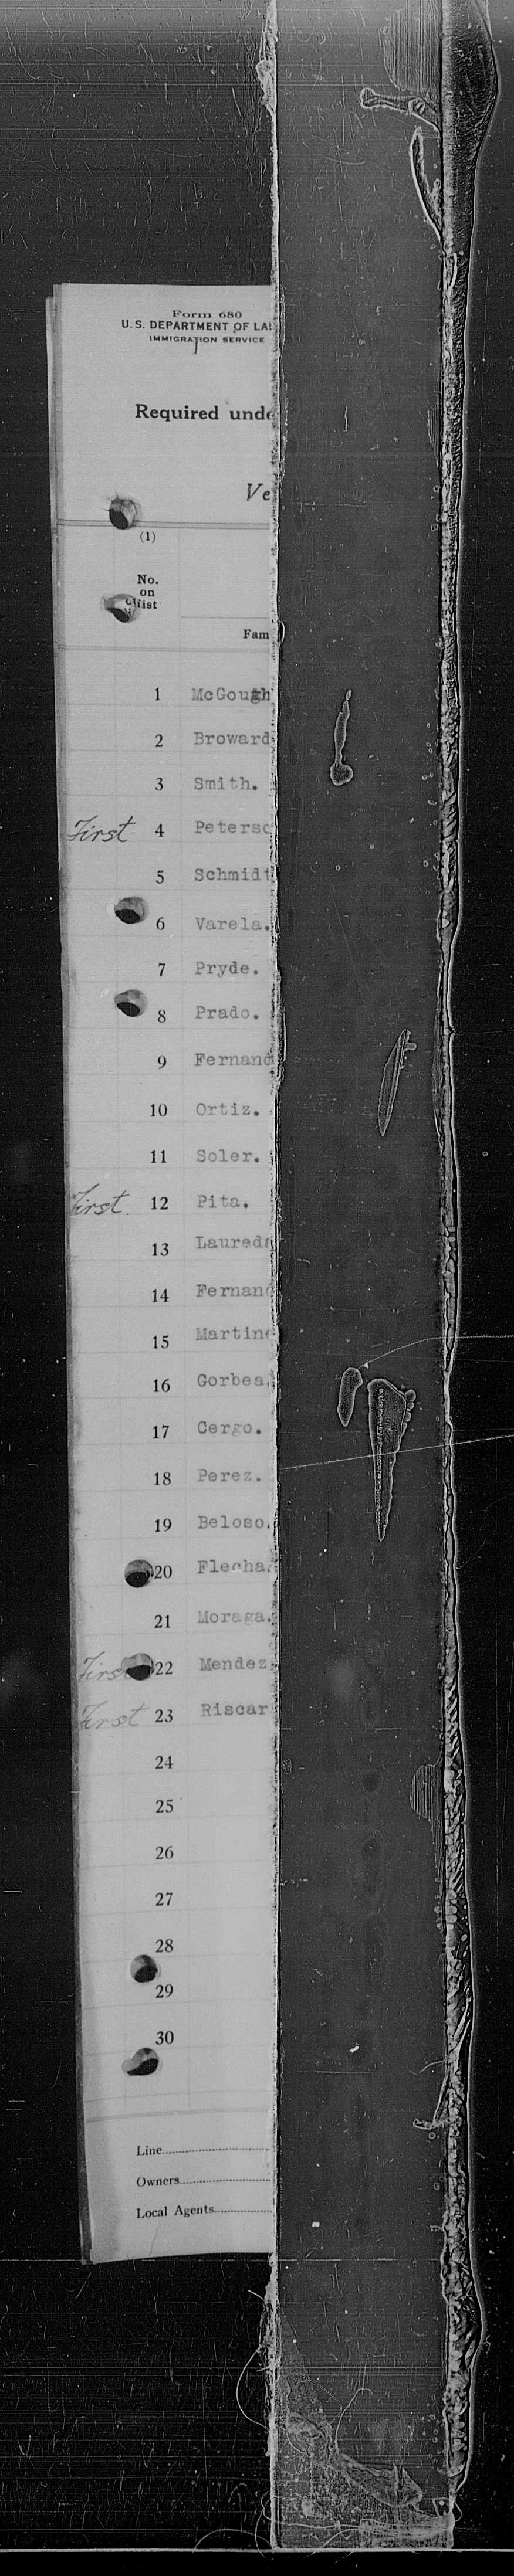 Form 680
U.S. DEPARTMENT OF LA
IMMIGRATION SERVICE
Required unde
Ve
(1)
No.
on
list
Fam
1 McGough
2 Broward
3 Smith.
First 4 Peterso
5 Schmidt
6 Varela.
7 Pryde.
8 Prado.
9 Fernand
10 Ortiz.
11 Soler.
First. 12 Pita.
13 Laureda
14 Fernand
15 Martine
16 Gorbea.
17 Cergo.
18 Perez.
19 Beloso.
20 Flecha.
21 Moraga.
First 22 Mendez
First 23 Riscar
24
25
26
27
28
29
30
Line
Owners
Local Agents